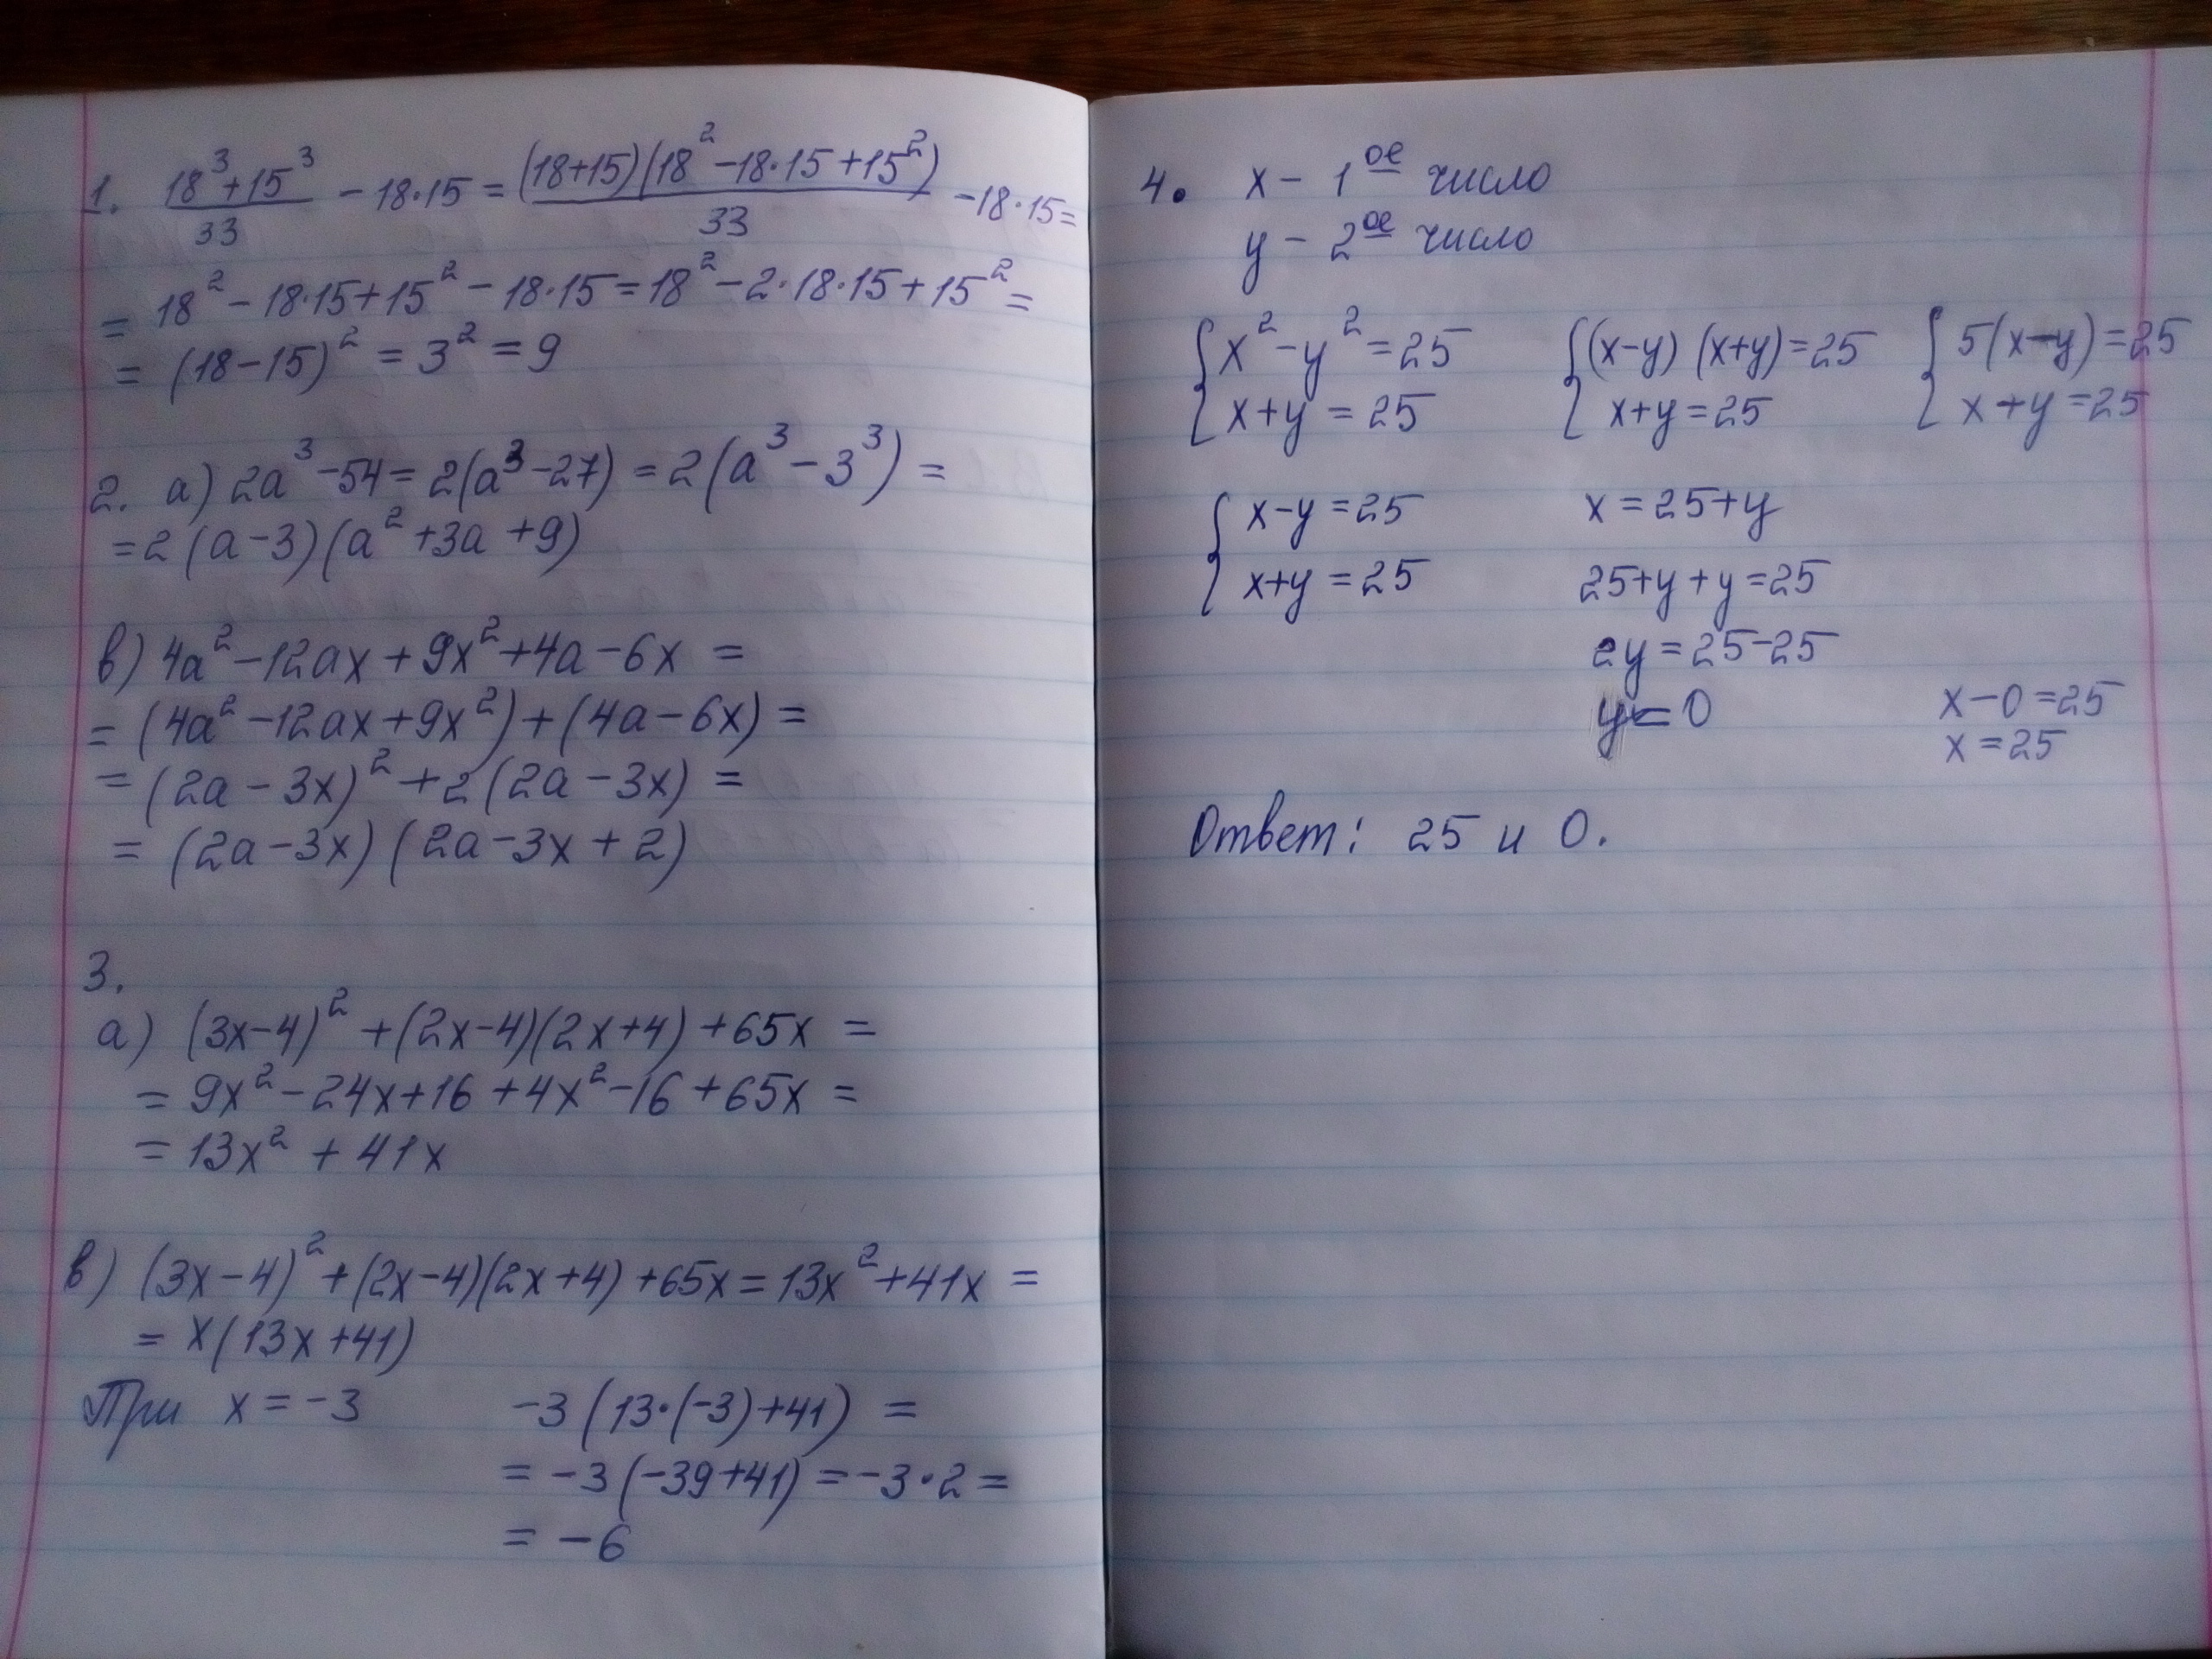 1. (18³+15³)/33 − 18·15 = ((18+15)(18²−18·15+15²))/33 − 18·15 =
= 18² − 18·15 + 15² − 18·15 = 18² − 2·18·15 + 15² =
= (18−15)² = 3² = 9
2. а) 2a³ − 54 = 2(a³ − 27) = 2(a³ − 3³) =
= 2(a−3)(a² + 3a + 9)
в) 4a² − 12ax + 9x² + 4a − 6x =
= (4a² − 12ax + 9x²) + (4a − 6x) =
= (2a − 3x)² + 2(2a − 3x) =
= (2a − 3x)(2a − 3x + 2)
3.
а) (3x−4)² + (2x−4)(2x+4) + 65x =
= 9x² − 24x + 16 + 4x² − 16 + 65x =
= 13x² + 41x
в) (3x−4)² + (2x−4)(2x+4) + 65x = 13x² + 41x =
= x(13x + 41)
При x = −3 −3(13·(−3)+41) =
= −3(−39+41) = −3·2 =
= −6
4. x − 1ое число
y − 2ое число
{ x² − y² = 25 { (x−y)(x+y) = 25 { 5(x−y) = 25
x + y = 25 x + y = 25 x + y = 25
{ x − y = 25 x = 25 + y
x + y = 25 25 + y + y = 25
2y = 25 − 25
y = 0 x − 0 = 25
x = 25
Ответ: 25 и 0.